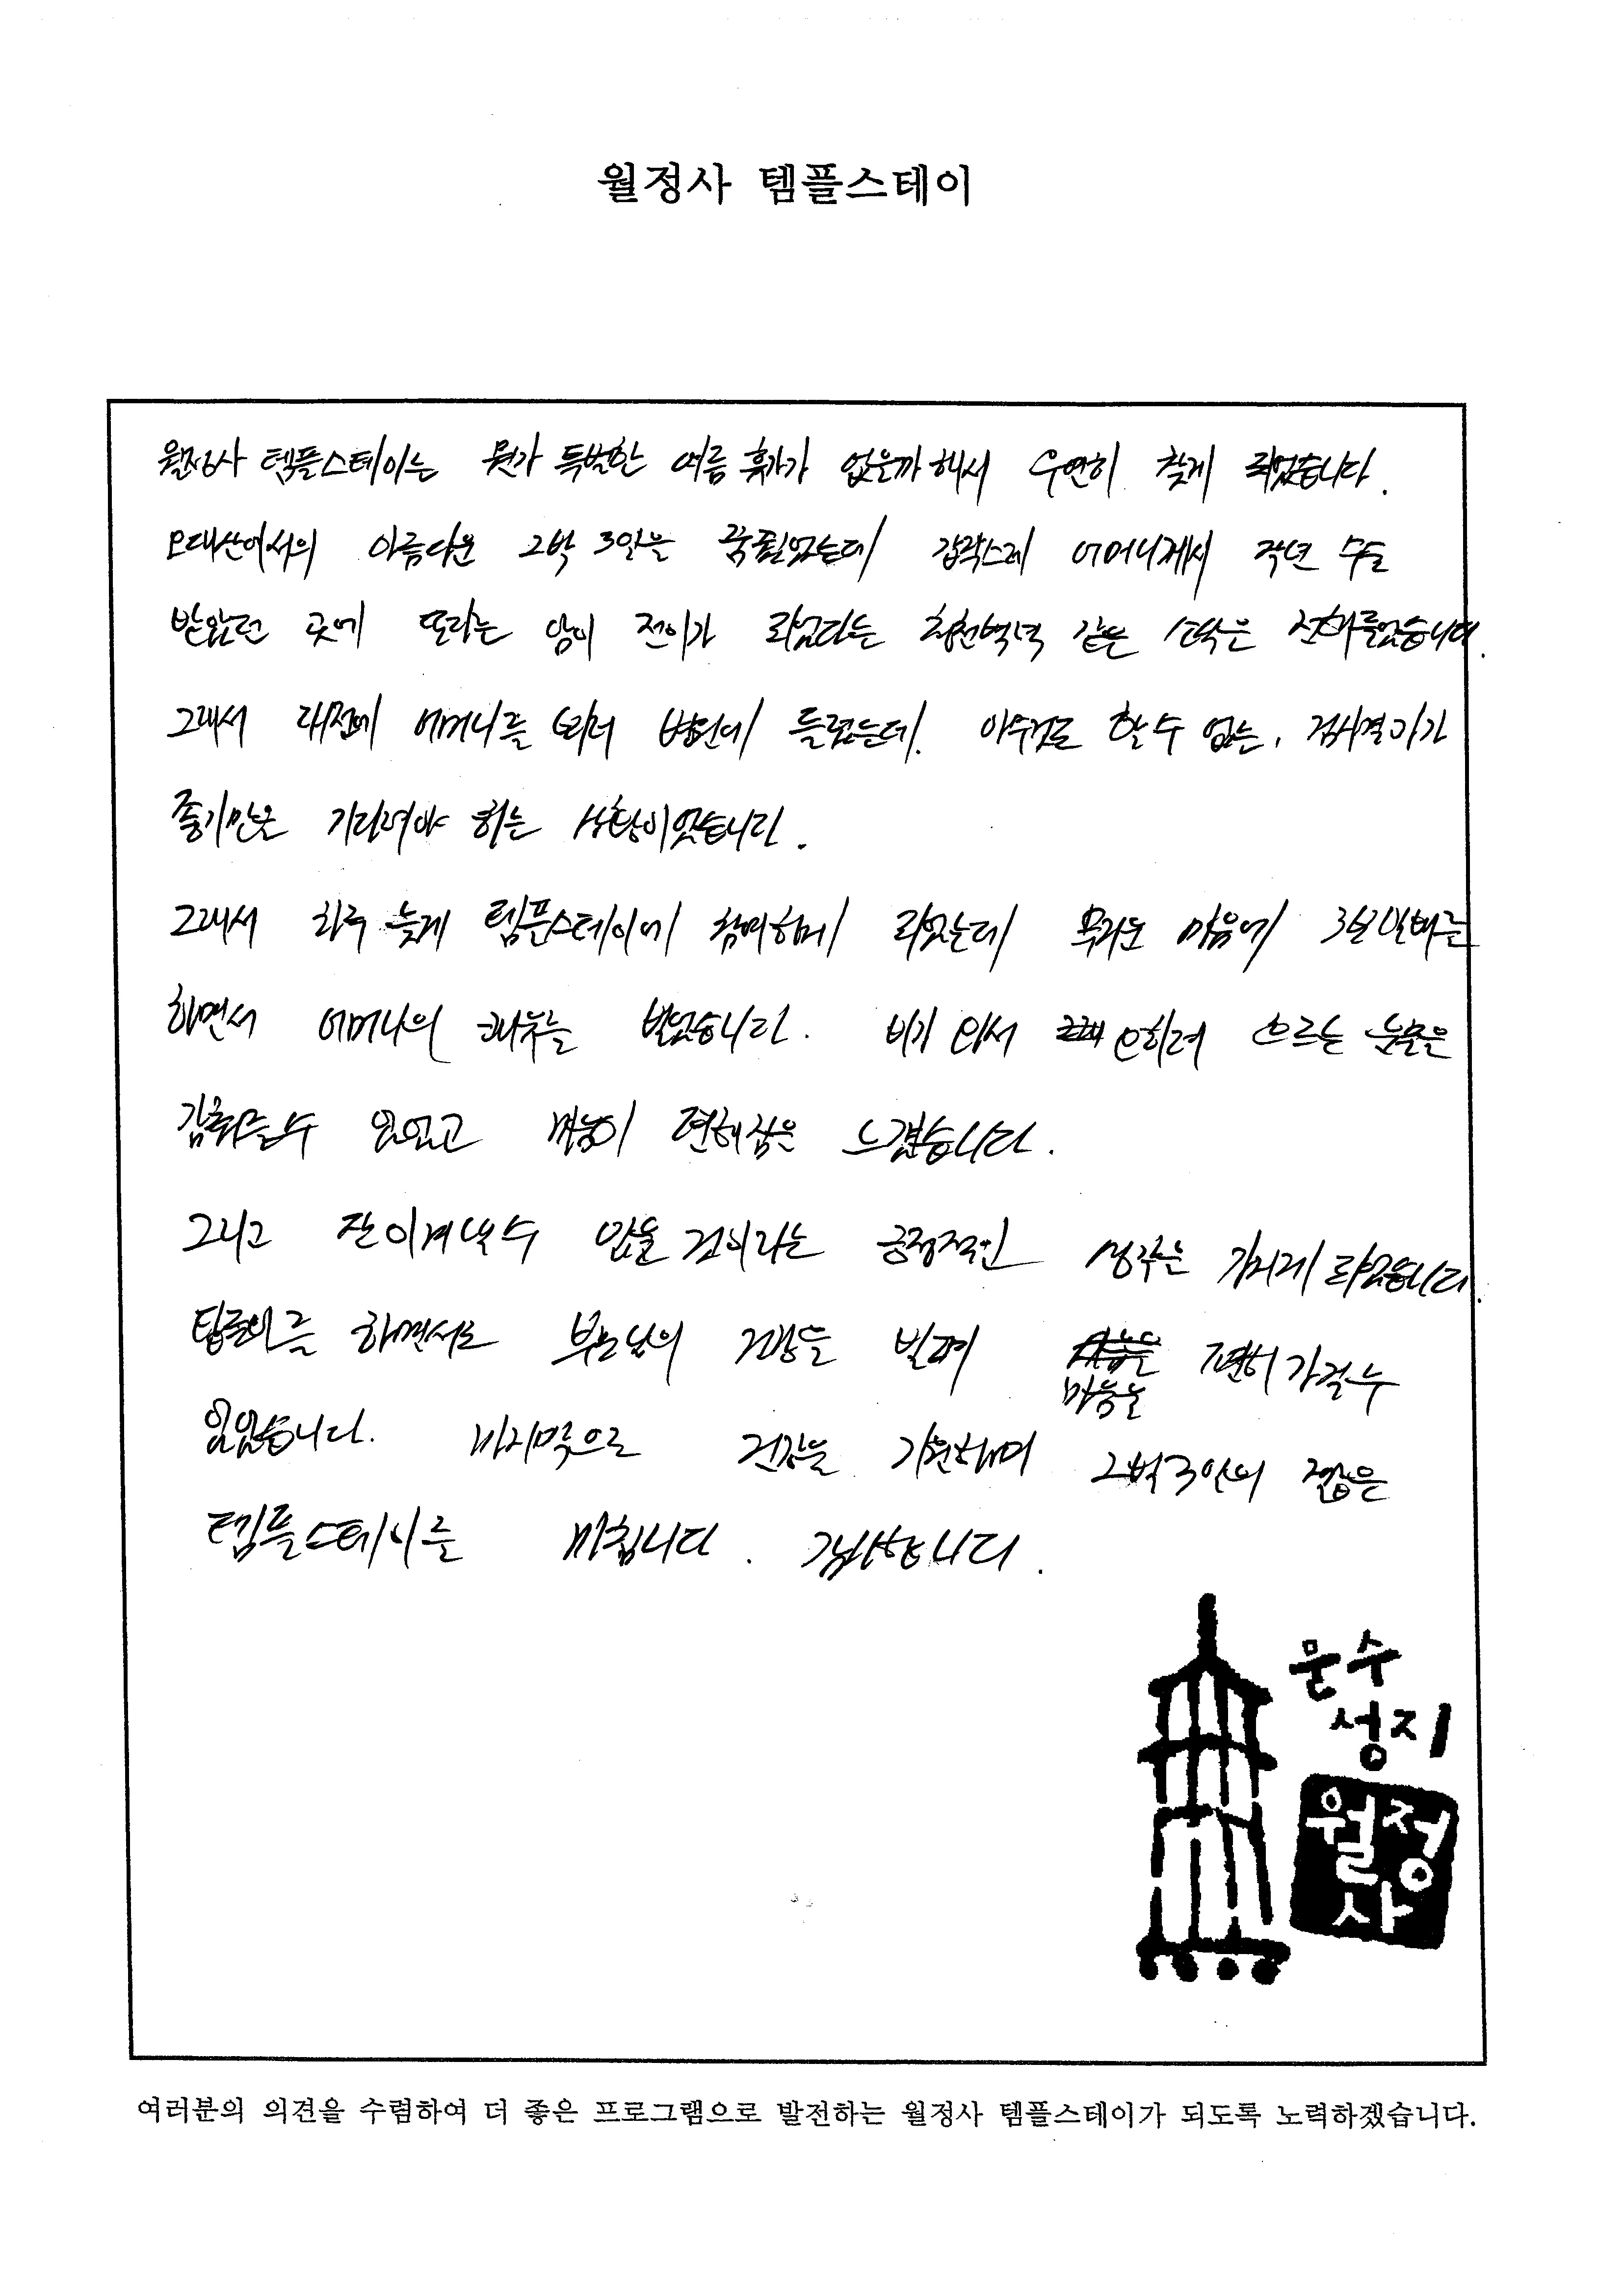 월정사 템플스테이
월정사 템플스테이는 뭔가 특별한 여름 휴가가 없을까 해서 우연히 찾게 되었습니다.
오대산에서의 아름다운 2박 3일을 꿈꾸었는데 갑작스레 어머니께서 작년 수술
받았던 곳에 또다른 암이 전이가 되었다는 청천벽력 같은 소식을 전해들었습니다.
그래서 대전에 어머니를 뵈러 병원에 들렸는데. 아무것도 할 수 없는, 검사결과가
좋기만을 기다려야 하는 상황이었습니다.
그래서 하루 늦게 템플스테이에 참여하게 되었는데 무거운 마음에 3보일배를
하면서 어머니의 쾌유를 빌었습니다. 비가 와서 오히려 흐르는 눈물을
감출 수 있었고 마음이 편해짐을 느꼈습니다.
그리고 잘 이겨낼 수 있을 것이라는 긍정적인 생각을 가지게 되었습니다.
탑돌이를 하면서도 부모님의 건강을 빌며 마음을 편히 가질 수
있었습니다. 마지막으로 건강을 기원하며 2박 3일의 짧은
템플스테이를 마칩니다. 감사합니다.
문수
성지
월정
사
여러분의 의견을 수렴하여 더 좋은 프로그램으로 발전하는 월정사 템플스테이가 되도록 노력하겠습니다.